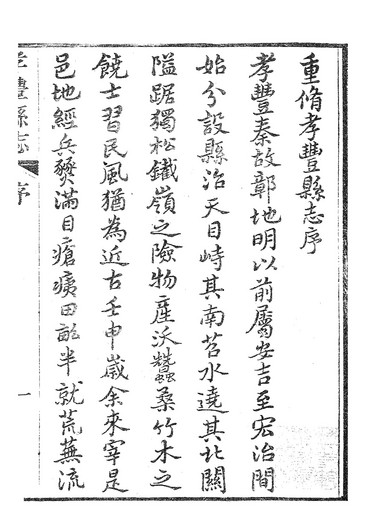 重脩孝豐縣志序
孝豐秦故鄣地明以前屬安吉至宏治間
始分設縣治天目峙其南苕水遶其北關
隘踞獨松鐵嶺之險物產沃蠶桑竹木之
饒士習民風猶為近古壬申歲余來宰是
邑地經兵燹滿目瘡痍田畝半就荒蕪流
孝豐縣志
序
一